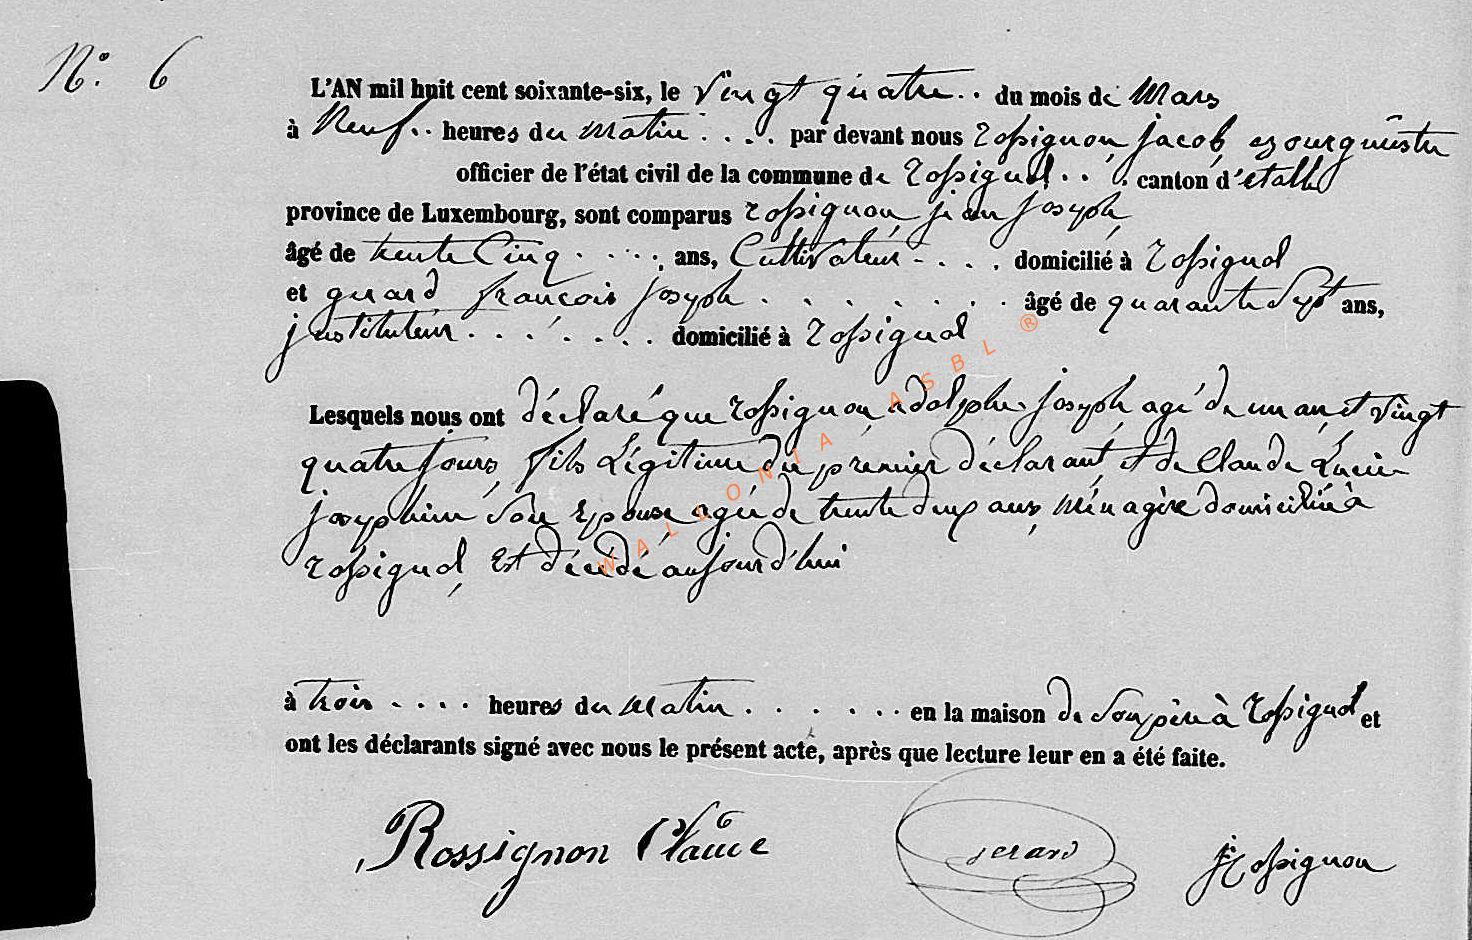 N.° 6
L'AN mil huit cent soixante-six, le vingt quatre .. du mois de Mars
à Neuf .. heures du matin . . . . par devant nous rossignon, jacob, Bourguüstre
officier de l'état civil de la commune de rossignol . . . . canton d'étalle
province de Luxembourg, sont comparus rossignon, jean joseph,
âgé de trente Cinq . . . . . ans, Cultivateur - . . . domicilié à rossignol
et gerard françois joseph . . . . . . . . âgé de quarante Sept ans,
justituteur . . . . . . . domicilié à rossignol
Lesquels nous ont déclaré que rossignon, adolphe joseph, agé de un an et vingt
quatre jours, fils Légitime du premier déclarant, et de Claude Lucie
josephine Son Epouse agée de trente deux ans, ménagère domiciliée à
rossignol, Est décédé aujourd'hui
à trois . . . . heures du matin . . . . . . en la maison de Son père à rossignol et
ont les déclarants signé avec nous le présent acte, après que lecture leur en a été faite.
Rossignon Claude gerard J Rossignon
WALLONIA ASBL ®